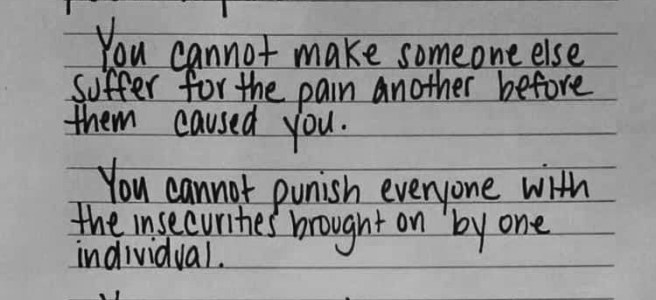 You cannot make someone else
suffer for the pain another before
them caused you.
You cannot punish everyone with
the insecurities brought on by one
individual.